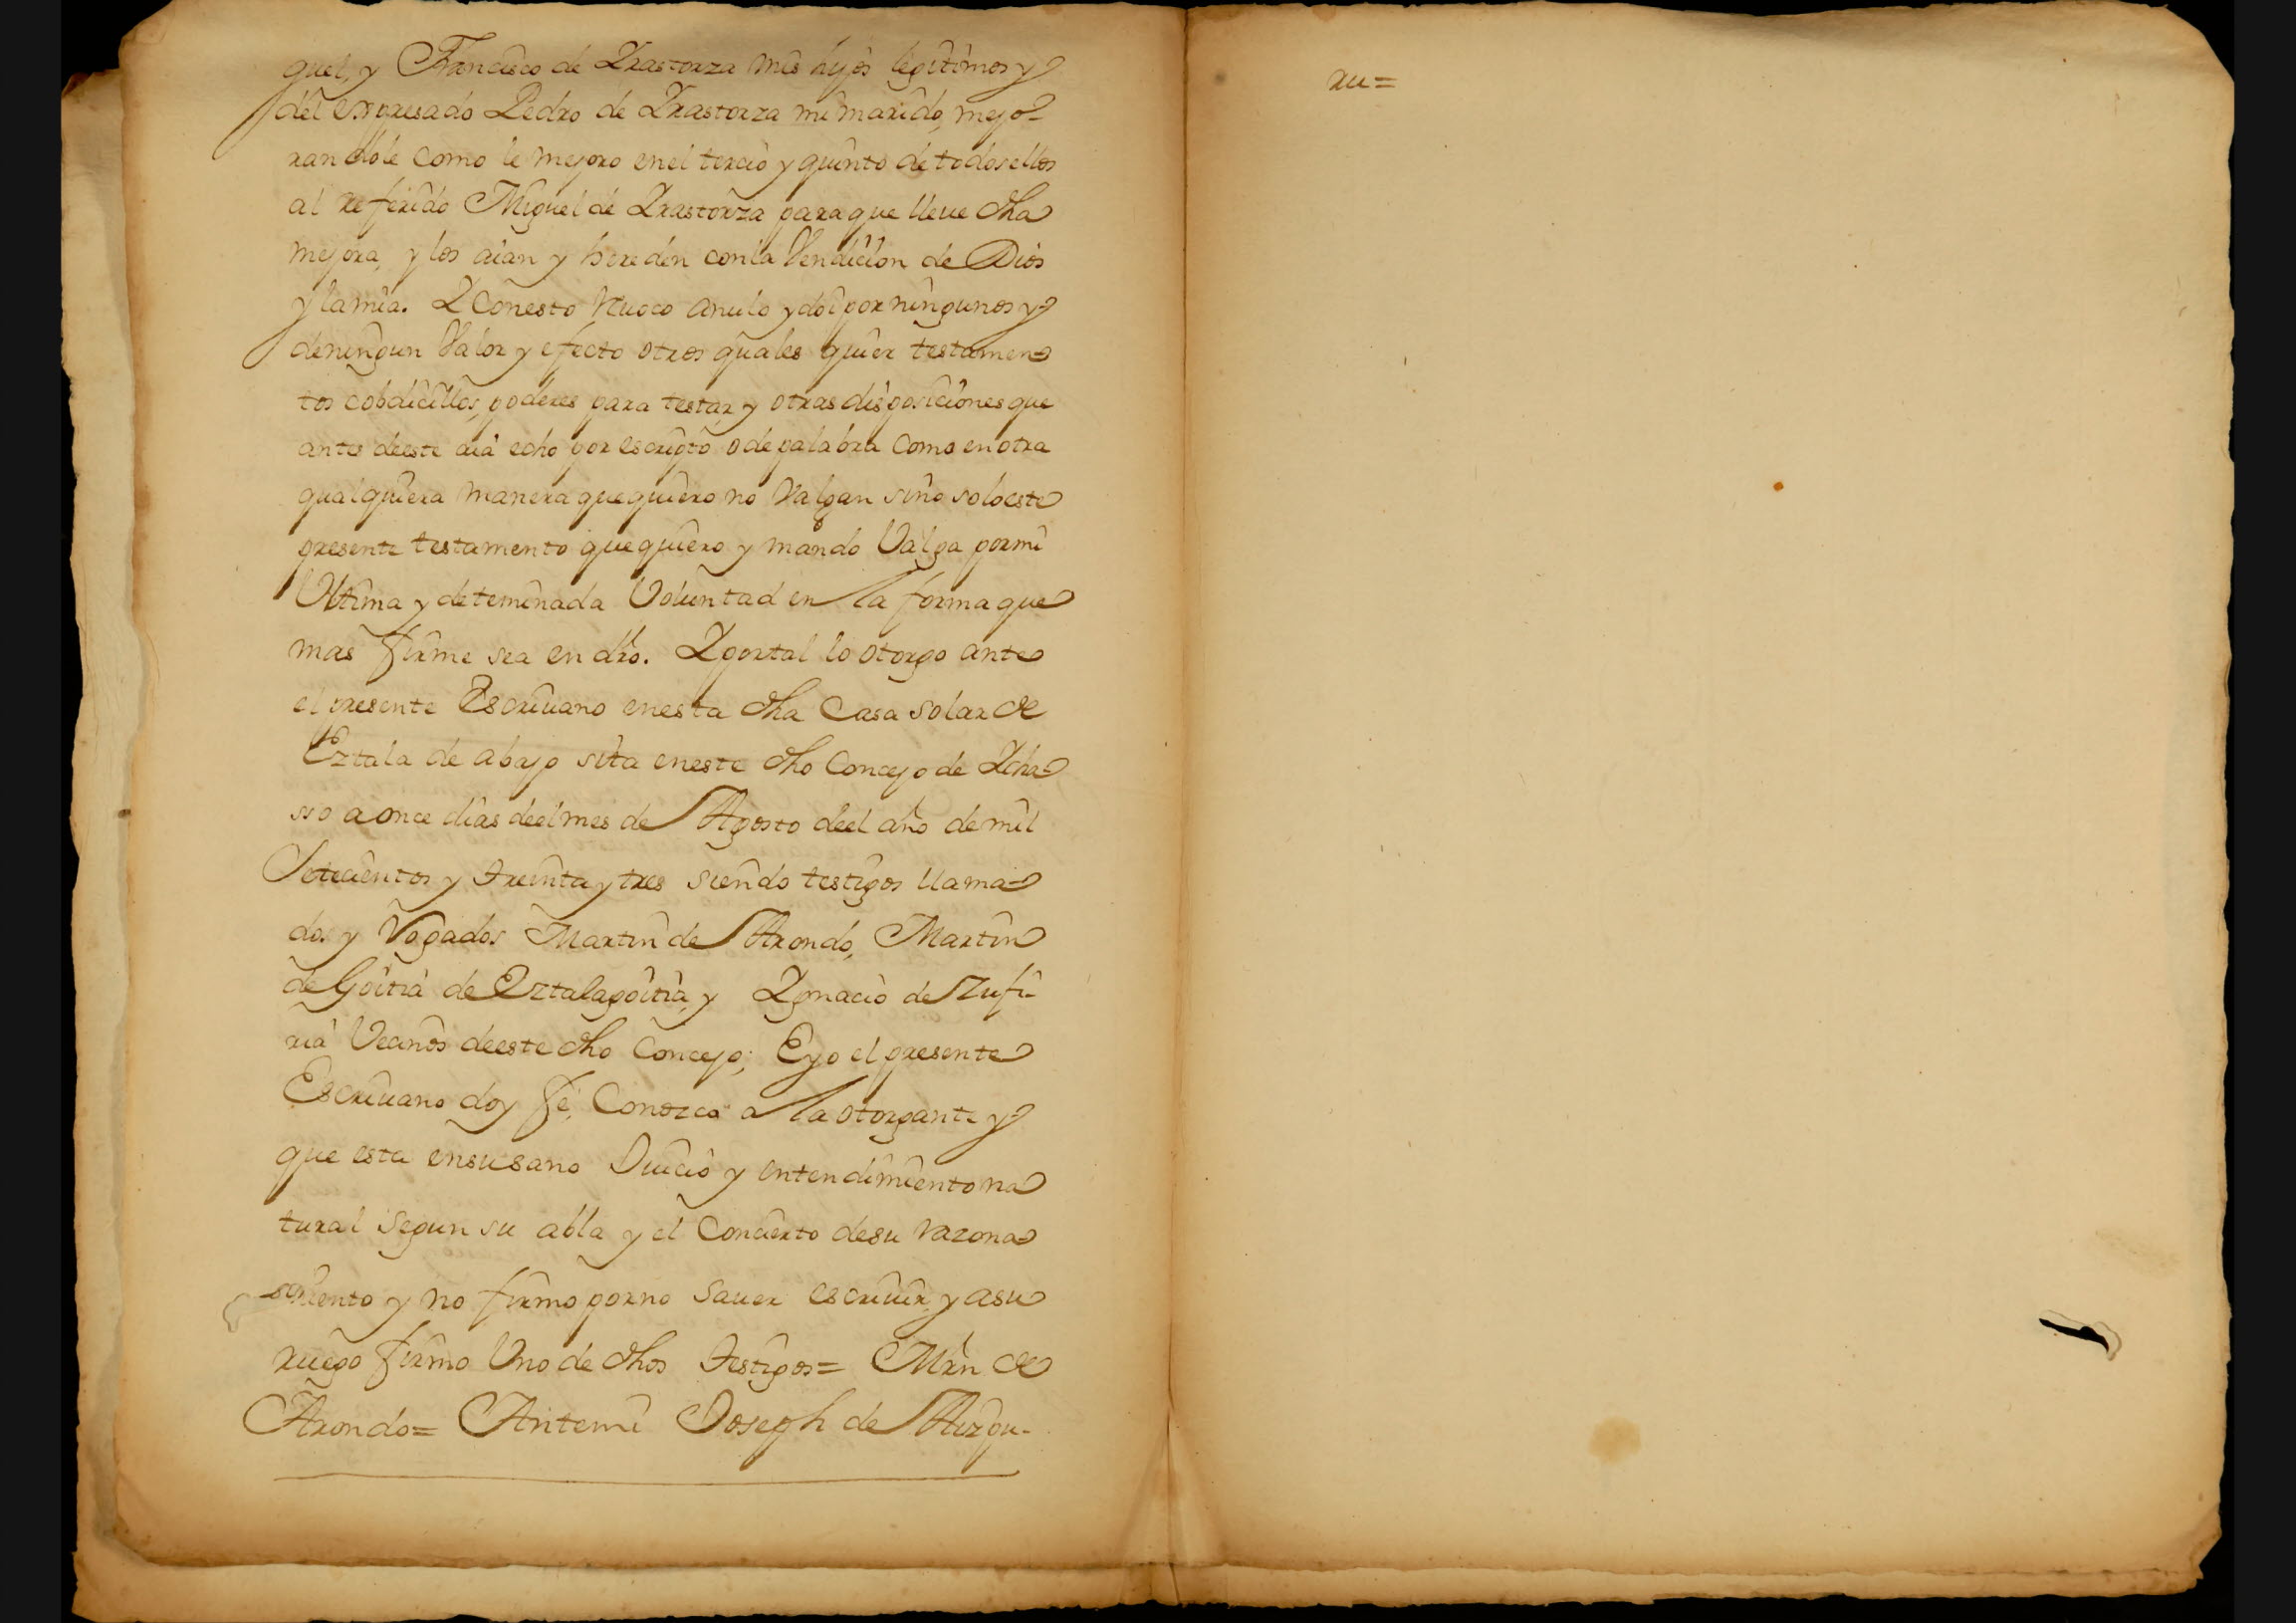 quel, y Francisco de Yrastorza mis hijos legitimos y
del expresado Pedro de Yrastorza mi marido, mejo-
randole como le mejoro en el tercio y quinto de todos ellos
al referido Miguel de Yrastorza para que lleve dha
mejora, y los aian y hereden con la Vendicion de Dios
y la mia. Y Con esto Revoco anulo y doi por ningunos y
de ningun Valor y efecto otros quales quier testamen-
tos cobdicillos, poderes para testar y otras disposiciones que
antes de este aia echo por escripto o de palabra como en otra
qualquiera manera que quiero no Valgan sino solo este
presente testamento que quiero y mando Valga por mi
Ultima y deteminada Voluntad en la forma que
mas firme sea en dro. Y por tal lo otorgo ante
el presente Escriuano en esta dha Casa solar de
Eztala de abajo sita en este dho Concejo de Ycha-
sso a once dias de el mes de Agosto de el año de mil
Setecientos y treinta y tres siendo testigos llama-
dos y Rogados Martin de Arondo, Martin
de Goitia de Eztalagoitia, y Ygnacio de Zufi-
ria Vecinos de este dho Concejo; E yo el presente
Escriuano doy fe, Conozco a la otorgante y
que esta en su sano Juicio y entendimiento na
tural segun su abla y el Concierto de su razona-
miento y no firmo por no sauer escriuir, y a su
ruego firmo Uno de dhos testigos = Mrn de
Arondo = Ante mi Joseph de Aizpu-
ru =